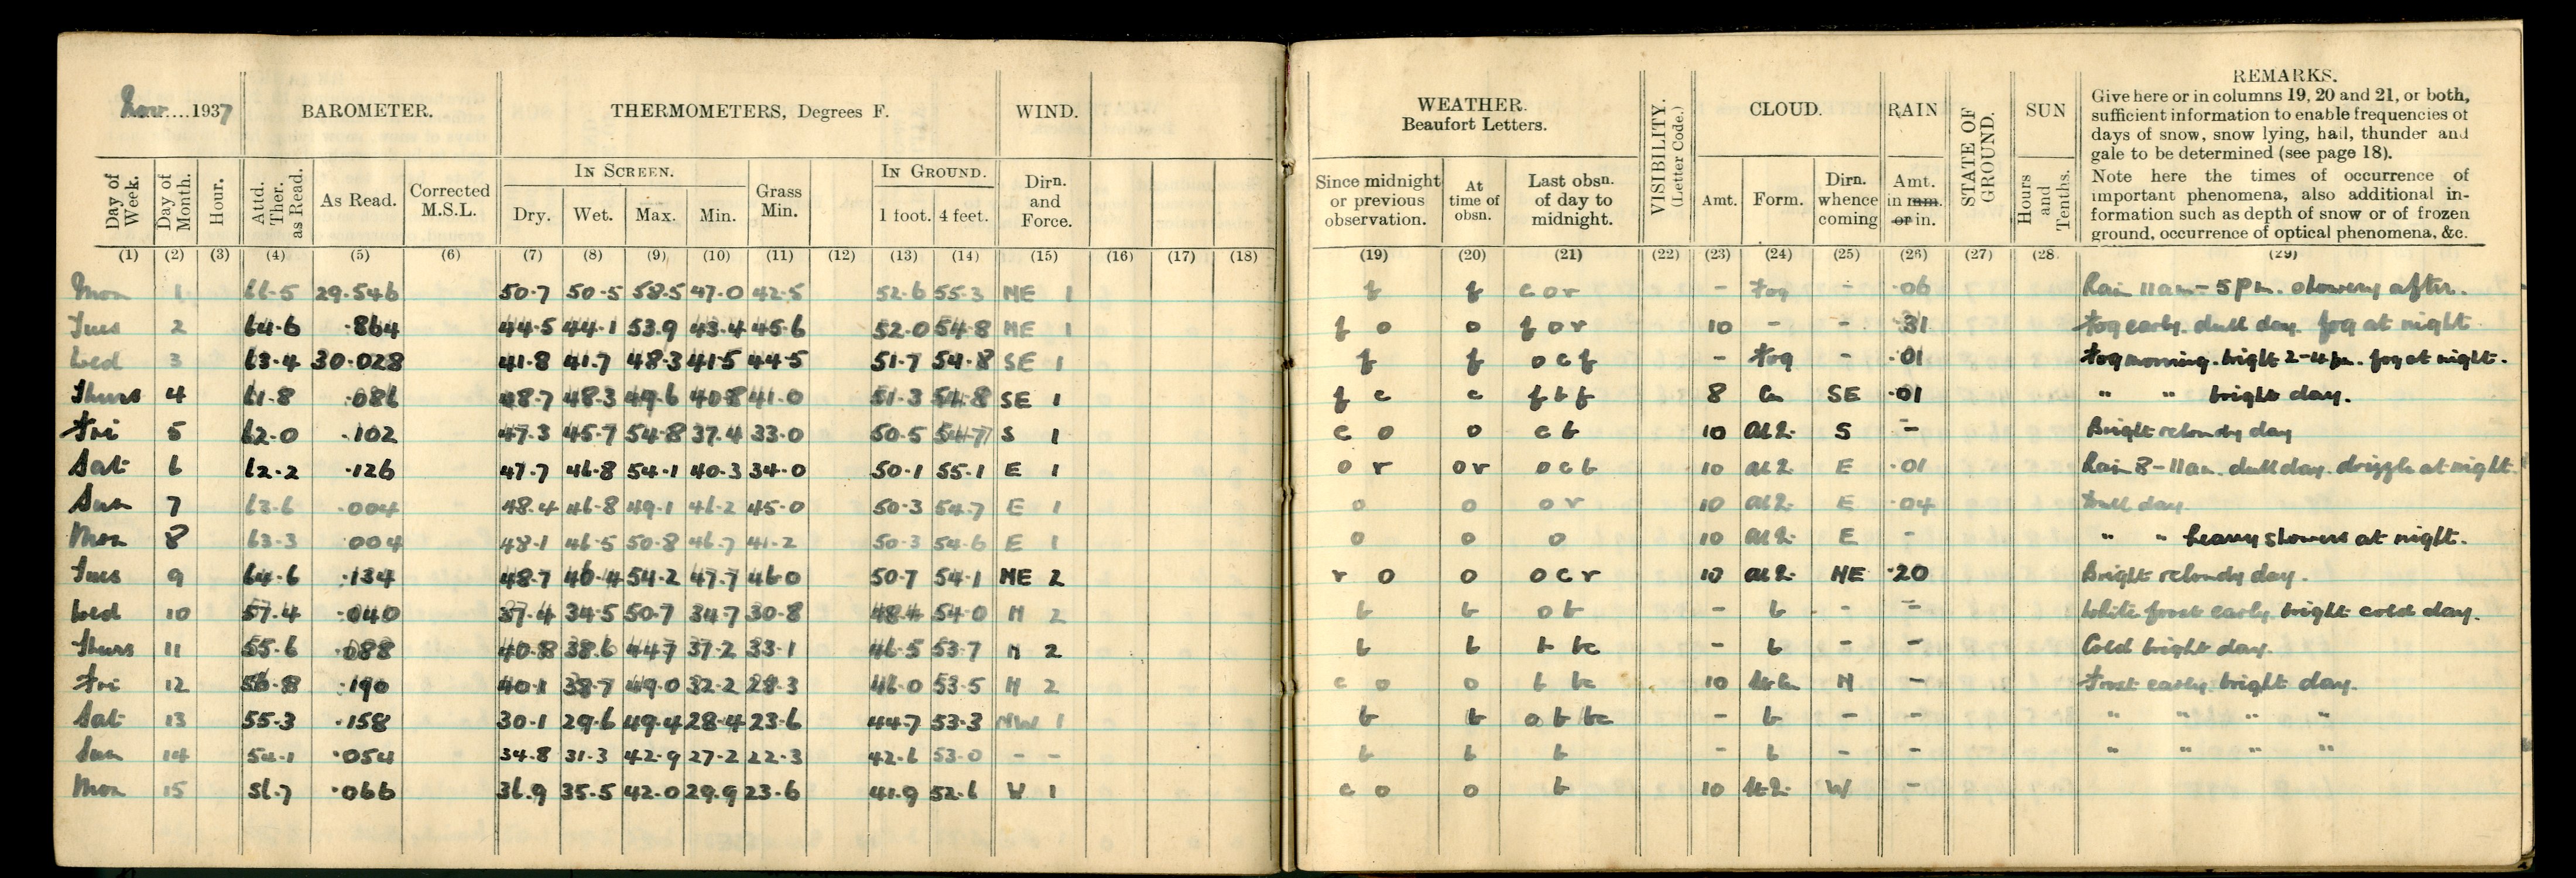 Nov....1937 BAROMETER. THERMOMETERS, Degrees F. WIND. WEATHER. Beaufort Letters. VISIBILITY. (Letter Code.) CLOUD. RAIN STATE OF GROUND. SUN REMARKS.
Give here or in columns 19, 20 and 21, or both,
sufficient information to enable frequencies of
days of snow, snow lying, hail, thunder and
gale to be determined (see page 18).
Note here the times of occurrence of
important phenomena, also additional in-
formation such as depth of snow or of frozen
ground, occurrence of optical phenomena, &c.
IN SCREEN. IN GROUND.
Day of Week. Day of Month. Hour. Attd. Ther. as Read. As Read. Corrected M.S.L. Dry. Wet. Max. Min. Grass Min. 1 foot. 4 feet. Dirn. and Force. Since midnight or previous observation. At time of obsn. Last obsn. of day to midnight. Amt. Form. Dirn. whence coming Amt. in mm. or in. Hours and Tenths.
(1) (2) (3) (4) (5) (6) (7) (8) (9) (10) (11) (12) (13) (14) (15) (16) (17) (18) (19) (20) (21) (22) (23) (24) (25) (26) (27) (28. (29)
Mon 1 66.5 29.546 50.7 50.5 58.5 47.0 42.5 52.6 55.3 NE 1 f f c o r - Fog - .06 Rain 11am - 5pm. showery after.
Tues 2 64.6 .864 44.5 44.1 53.9 43.4 45.6 52.0 54.8 NE 1 f o o f o r 10 - - .31 Fog early. dull day. fog at night
Wed 3 63.4 30.028 41.8 41.7 48.3 41.5 44.5 51.7 54.8 SE 1 f f o c f - Fog - .01 Fog morning. bright 2-4pm. fog at night.
Thurs 4 61.8 .086 48.7 48.3 49.6 40.8 41.0 51.3 54.8 SE 1 f c c f b f 8 Cu SE .01 " " bright day.
Fri 5 62.0 .102 47.3 45.7 54.8 37.4 33.0 50.5 54.7 S 1 c o o c b 10 S - Bright & cloudy day
Sat 6 62.2 .126 47.7 46.8 54.1 40.3 34.0 50.1 55.1 E 1 o r o r o c b 10 E .01 Rain 8-11am. dull day. drizzle at night.
Sun 7 63.6 .004 48.4 46.8 49.1 46.2 45.0 50.3 54.7 E 1 o o o r 10 E .04 Dull day.
Mon 8 63.3 004 48.1 46.5 50.8 46.7 41.2 50.3 54.6 E 1 o o o 10 E - " " heavy showers at night.
Tues 9 64.6 .134 48.7 46.4 54.2 47.7 46.0 50.7 54.1 NE 2 r o o o c r 10 NE .20 Bright & cloudy day.
Wed 10 57.4 .040 37.4 34.5 50.7 34.7 30.8 48.4 54.0 N 2 b b o b - b - - White frost early. bright cold day.
Thurs 11 55.6 .088 40.8 38.6 44.7 37.2 33.1 46.5 53.7 N 2 b b b bc - b - - Cold bright day.
Fri 12 56.8 .190 40.1 38.7 49.0 32.2 28.3 46.0 53.5 N 2 c o o b bc 10 N - Frost early. bright day.
Sat 13 55.3 .158 30.1 29.6 49.4 28.4 23.6 44.7 53.3 NW 1 b b b bc - b - - " " " "
Sun 14 54.1 .054 34.8 31.3 42.9 27.2 22.3 42.6 53.0 - - b b b - b - - " " " "
Mon 15 56.7 .066 36.9 35.5 42.0 29.9 23.6 41.9 52.6 W 1 c o o b 10 W -